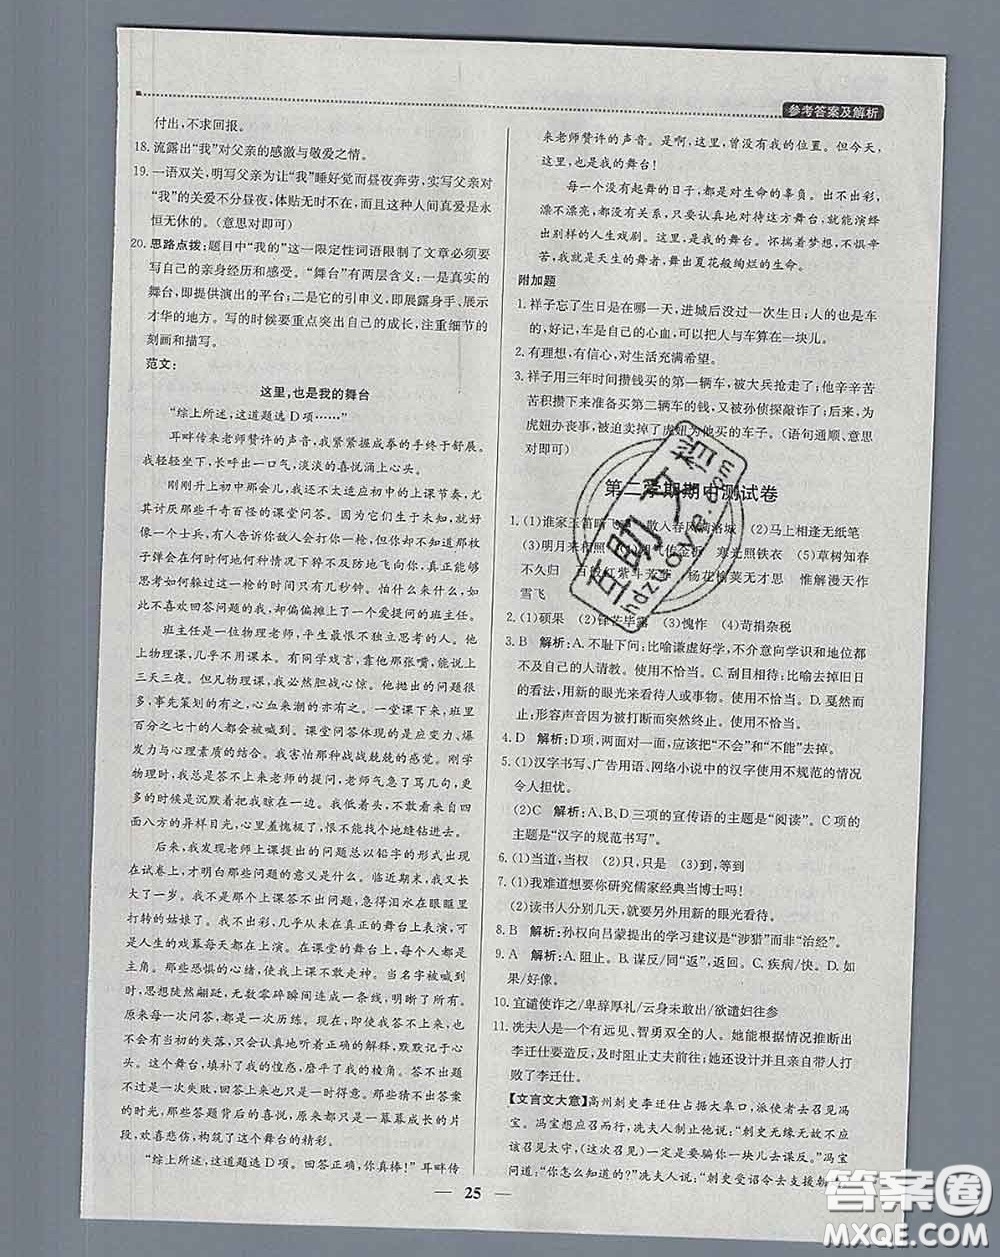 参考答案及解析
付出,不求回报。
18. 流露出“我”对父亲的感激与敬爱之情。
19. 一语双关,明写父亲为让“我”睡好觉而昼夜奔劳,实写父亲对
“我”的关爱不分昼夜,体贴无时不在,而且这种人间真爱是永
恒无休的。(意思对即可)
20. 思路点拨:题目中“我的”这一限定性词语限制了文章必须要
写自己的亲身经历和感受。“舞台”有两层含义:一是真实的
舞台,即提供演出的平台;二是它的引申义,即展露身手、展示
才华的地方。写的时候要重点突出自己的成长,注重细节的
刻画和描写。
范文:
这里,也是我的舞台
“综上所述,这道题选D项……”
耳畔传来老师赞许的声音,我紧紧握成拳的手终于舒展。
我轻轻坐下,长呼出一口气,淡淡的喜悦涌上心头。
刚刚升入初中的时候,我不太适应初中的上课节奏,尤
其讨厌那些千奇百怪的课堂提问。它们发生于未知,就好
像一个士兵,有人告诉你敌人会打你一枪,可是你不知道那枚
子弹会在何时何地何种情况下猝不及防地飞向你,而你
思考如何躲过这一枪的时间只有几秒钟。怕什么来什么,
不喜欢回答问题的我,却偏偏摊上了一个爱提问的班主任。
班主任是一位物理老师,平生最恨不独立思考的人。他
上物理课,几乎不用课本。有同学戏言,他能不用教材讲上
三天三夜。但凡物理课,我必然胆战心惊。他抛出的问题很
多,事先策划的有之,心血来潮的亦有之。一堂课下来,班里
百分之七十的人都会被喊到。课堂问答体现的是应变力、爆
发力与心理素质的结合。我害怕那种战战兢兢的感觉。刚学
物理时,我总是答不上来老师的提问,老师气急了骂几句,
更多的时候是沉默着把我晾在一边。我低着头,余光瞥见四
面八方的异样目光,心里羞愧极了,恨不得找个地缝钻进去。
后来,我发现老师上课提的问题总以铅字的形式出现
在试卷上,才明白那些问题的意义是什么。临近期末,我又长
大了一岁。我不再是那个答不出问题,急得泪水在眼眶里
打转的姑娘了。我不再害怕,几乎从未在舞台上表演的我,
可是人生的戏幕每天都在上演。在课堂的舞台上,我就是
主角。那些恐惧的心绪,让我上课不敢走神。当名字被喊到
时,思想陡然翩跹,无数零碎瞬间连成一条线,明晰了起来。
原来每一次问答,都是一次历练。现在,即使我答不出来,也
不会有当初的失落,只会认真地听着正确的解释,默默记于
心头。这个舞台,填补了我的惶惑,磨平了我的棱角。答不出
来不过是一次失败,回答上来也只是一时得意。那些想答案
的时光,那些答题背后的喜悦,原来都只是一幕幕成长的片
段,欢喜悲伤,构筑了这个舞台的精彩。
“综上所述,这道题选D项。回答正确,你真棒!”耳畔传
来老师赞许的声音。可是啊,那台上曾没有我的位置。但今天,
这里,也是我的舞台!
每一个没有起舞的日子,都是对生命的辜负。出不出彩,
漂不漂亮,都没有关系,只要认真地对待这方舞台,就能演绎
出别样的人生戏剧。這里,是我的舞台。怀揣着梦想,不惧辛
苦,我就是天生的舞者,舞出夏花般绚烂的生命。
附加题
1. 祥子忘了生日是在哪一天,进城后没过一次生日;人的也是车
的,好记,车是自己的心血,可以把人与车算在一块儿。
2. 有理想,有信心,对生活充满希望。
3. 祥子用三年时间攒钱买的第一辆车,被大兵抢走了;他辛辛苦
苦积攒下来准备买第二辆车的钱,又被孙侦探敲诈了;后来,
虎妞办丧事,被迫卖掉了虎妞为他买的车子。(语句通顺、意思
对即可)
第二学期期中测试卷
1. (1)谁家玉笛暗飞声 散入春风满洛城 (2)马上相逢无纸笔
(3)明月来相照 (4)朔气传金柝 寒光照铁衣 (5)草树知春
不久归 百般红紫斗芳菲 杨花榆荚无才思 惟解漫天作
雪飞
2. (1)硕果 (2)锋芒毕露 (3)愧怍 (4)苛捐杂税
3. B 解析:A. 不耻下问:比喻谦虚好学,不介意向学识和地位都
不及自己的人请教。使用不恰当。C. 刮目相待:比喻去掉旧日
的看法,用新的眼光来看待人或事物。使用不恰当。D. 戛然而
止:形容声音因为被打断而突然终止。使用不恰当。
4. D 解析:D项,两面对一面,应该把“不会”和“不能”去掉。
5. (1)汉字书写、广告用语、网络小说中的汉字使用不规范的情况
令人担忧。
(2)C 解析:A、B、D三项的宣传语的主题是“阅读”。C项的
主题是“汉字的规范书写”。
6. (1)当道,当权 (2)只,只是 (3)到,等到
7. (1)我难道想要你研究儒家经典当博士吗!
(2)读书人分别几天,就要另外用新的眼光看待。
8. B 解析:孙权向吕蒙提出的学习建议是“涉猎”而非“治经”。
9. A 解析:A. 阻止。B. 谋反/同“返”,返回。C. 疾病/快。D. 如
果/好像。
10. 宜谴使诈之/卑辞厚礼/云身未敢出/欲谴妇往参
11. 冼夫人是一个有远见、智勇双全的人。她能根据情况推断出
李迁仕要造反,及时阻止丈夫前往;她还设计并且亲自带人打
败了李迁仕。
【文言文大意】高州刺史李迁仕占据大皋口,派使者去召见冯
宝。冯宝想要前去,冼夫人制止他说:“刺史无缘无故不应
该召见太守,(这次召见)一定是要骗你一块儿去谋反。”冯宝
问道:“你怎么知道的?”冼夫人说:“刺史受诏令去支援朝
25
互助文档
hdzuoye.com
答案圈
MXQE.COM